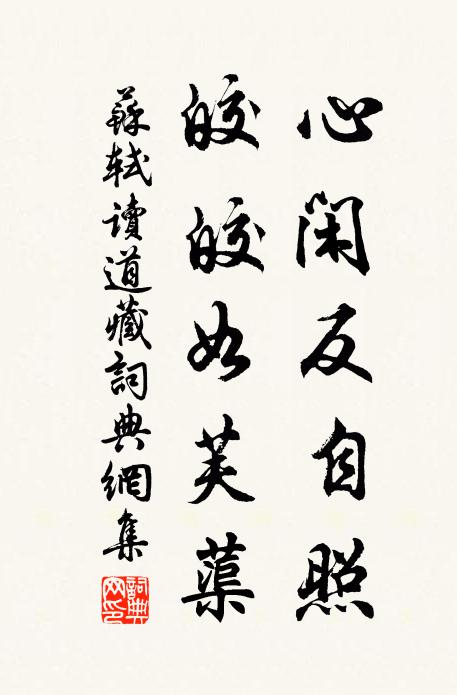 心閑反自照
皎皎如芙蕖
蘇軾讀道藏詞典網集
詞典网印